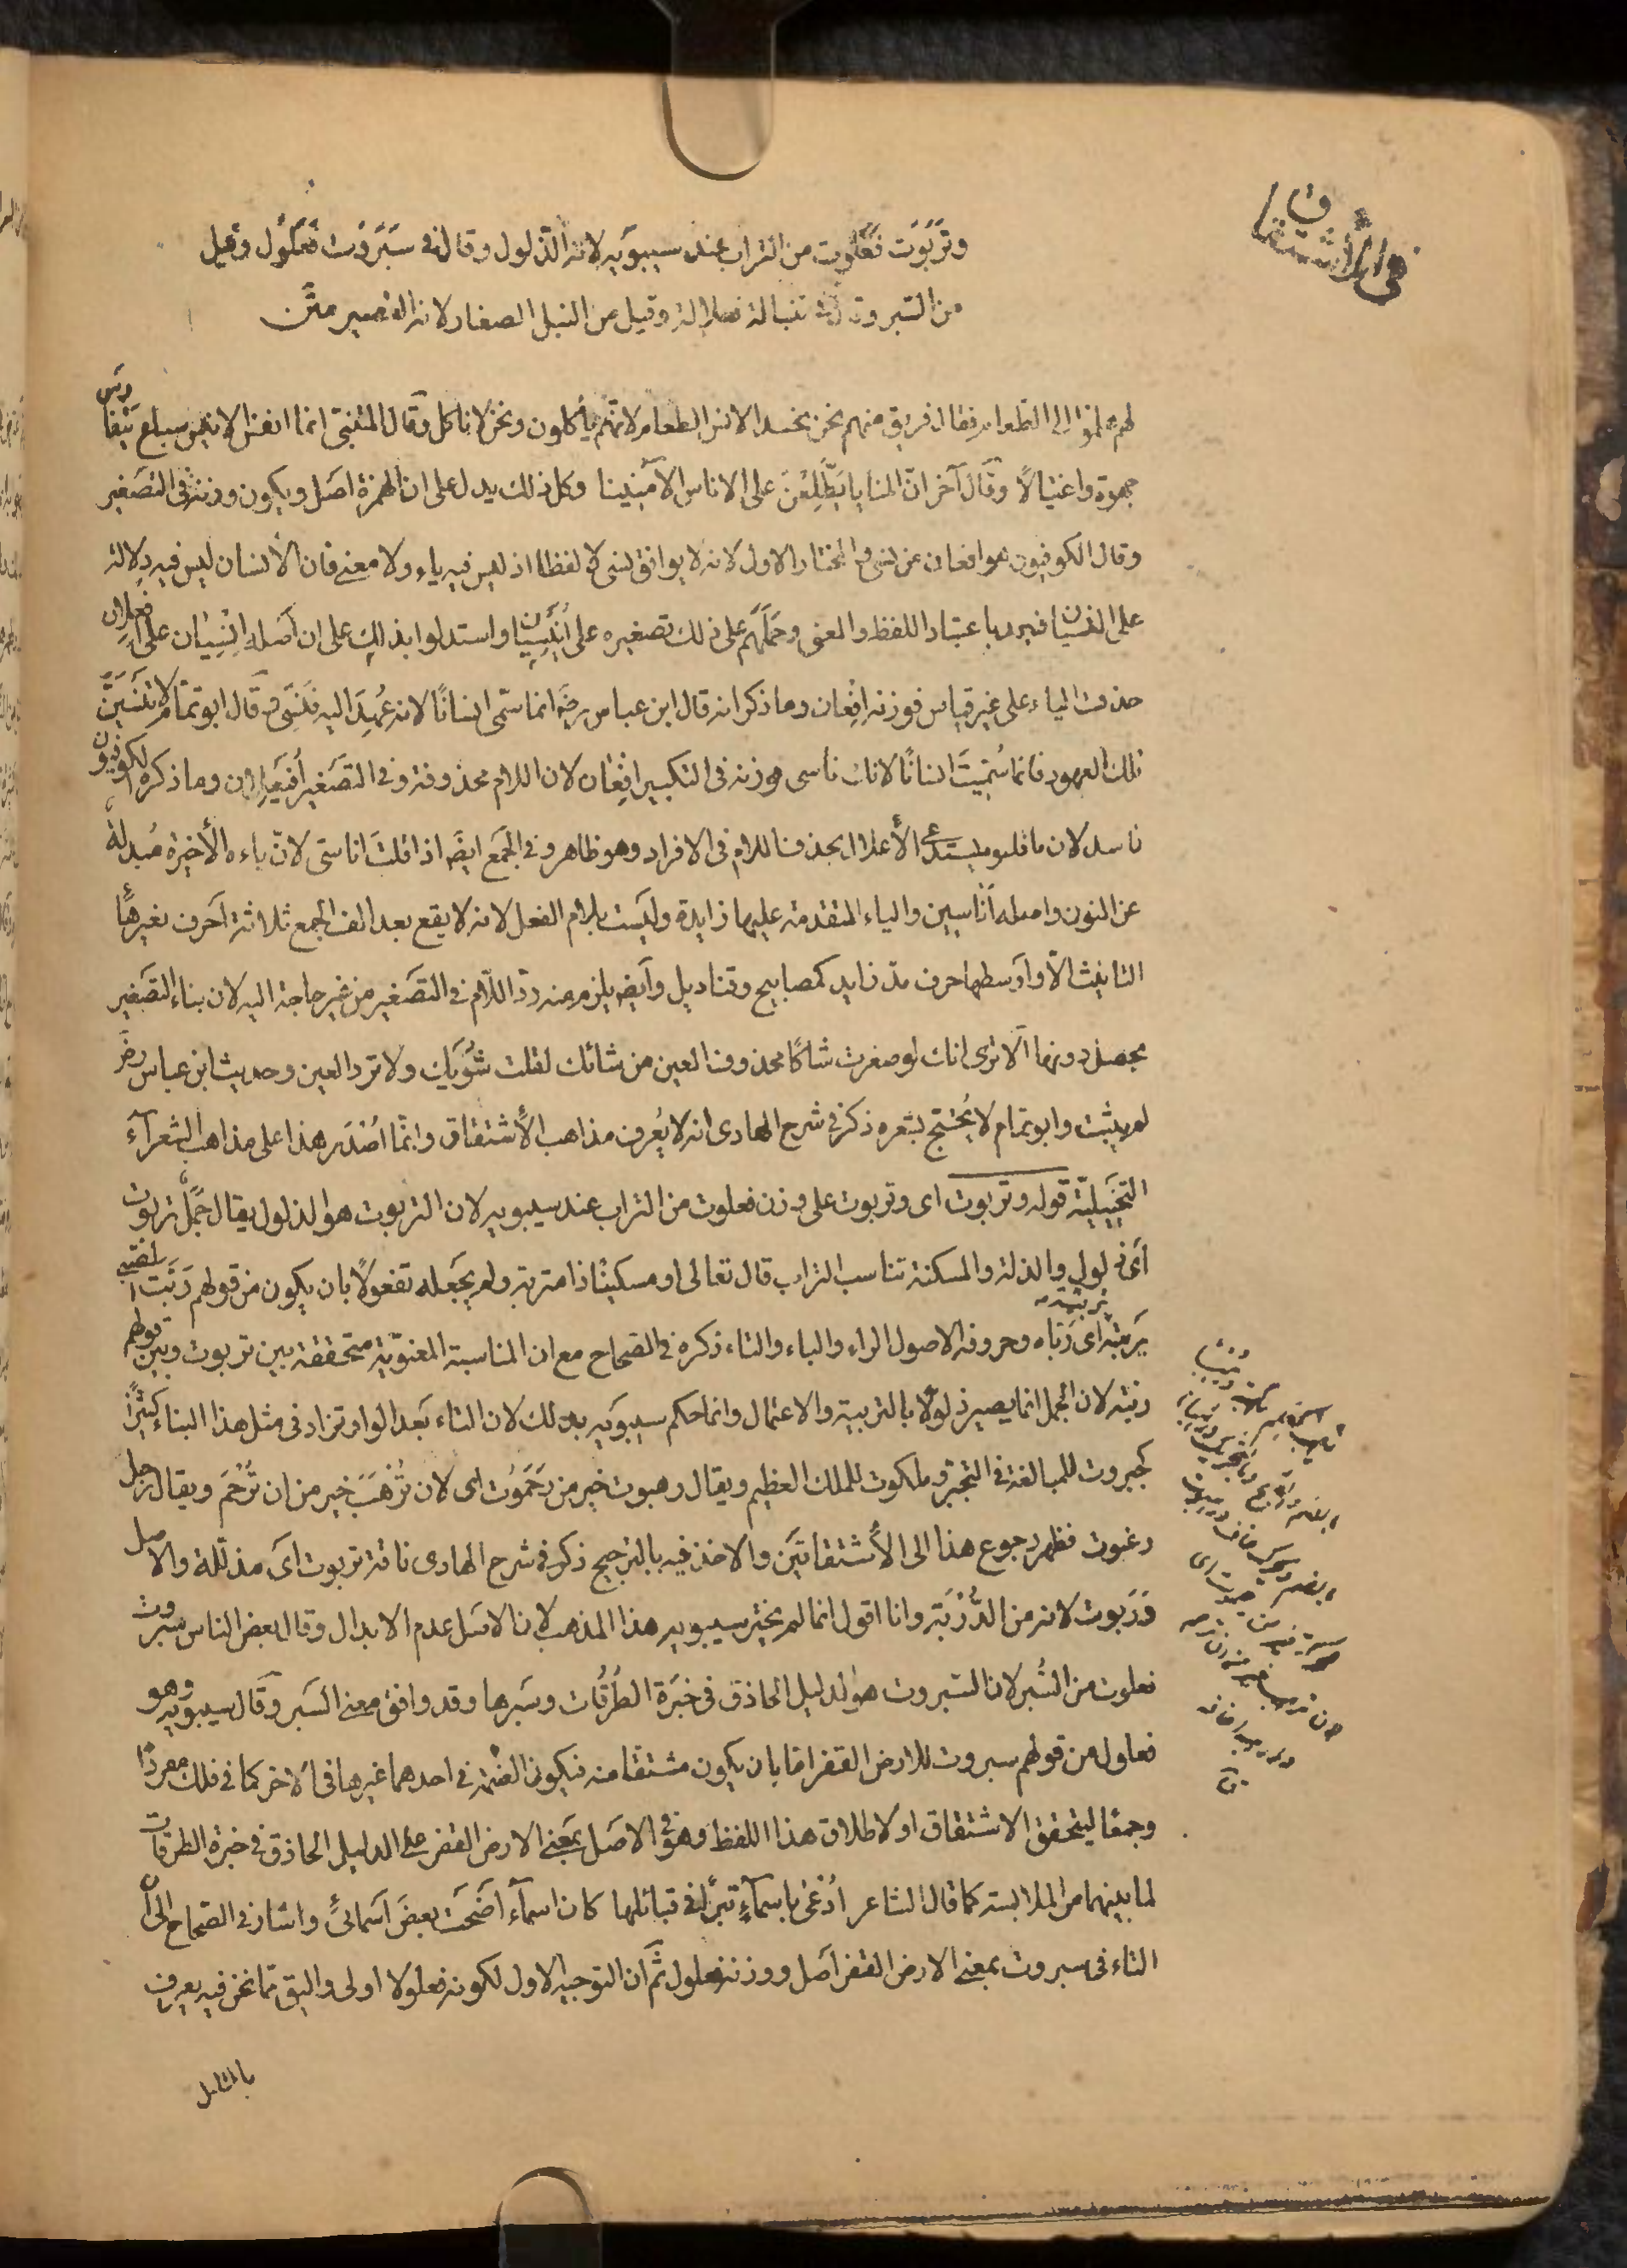 في الأشتقاق
وتَرَبَوت فَعَلوت من التراب عند سيبويه لانه الذلول وقال في سَبَروت فَعلُول وقيل
من السبر وقال في تنبالة فعلالة وقيل من النبل الصغار لانه القصير متن
لهم هلموا الى الطعام فقال فريق منهم نحن نحسد الانس الطعام لانهم يأكلون ونحن لا ناكل وقال المتنبى انما انفس الانيس سباع يتفارسن
جهرة واغتيالًا وقال آخر انّ المنايا يَطَّلِعْنَ على الاناس الآمنينا وكل ذلك يدل على ان الهمزة اصل ويكون وزنه في التصغير
وقال الكوفيون هو افعان من نسى والمختار الاول لانه لا يوافق نسى لا لفظا اذ ليس فيه ياء ولا معنى فان الأنسان ليس فيه دلالة
على النسيان فيرد باعتبار اللفظ والمعنى وحملهم على ذلك تصغيره على اُنَيْسِيَان واستدلوا بذلك على ان اصله اِنْسِيَان على افعلان
حذفت الياء على غير قياس فوزنه افِعان وما ذكر انه قال ابن عباس رضه انما سمّى انسانًا لانه عُهِدَ اليه فَنَسِىَ وقال ابو تمّام لا تَنْسَيَنَّ
تلك العهود فانما سُمّيتَ انسانًا لانك ناسى فوزنه فى التكبير افِعان لان اللام محذوفة وفي التصغير اُفَيْعِلان وما ذكره الكوفيون
فاسد لان ما قلبوه يستدعى الأعلال بحذف اللام فى الافراد وهو ظاهر وفي الجمع ايضَه اذا قلتَ اناسىّ لانّ ياءه الأخيرة مُبدلة
عن النون واصله أناسين والياء المتقدمة عليها زايدة وليست بلام الفعل لانه لا يقع بعد الف الجمع ثلاثة احرف بغير هاء
التانيث الّا واوسطها حرف مدّ زايد كمصابيح وقناديل وايضه يلزم منه ردّ اللّام في التصغير من غير حاجة اليه لان بناء التصغير
يحصل دونها ألا ترى انك لو صغرت شاكًا محذوف العين من شائك لقلت شُوَيك ولا ترد العين وحديث ابن عباس رضه
لم يثبت وابو تمام لا يُحْتج بشعره ذكر في شرح الهادى انه لا يُعرف مذاهب الأشتقاق وانّما اُصْدَر هذا على مذاهب الشعراء
التخييليّة قوله وتربوت اى وتربوت على وزن فعلوت من التراب عند سيبويه لان التربوت هو الذلول يقال جَمَلٌ تربوت
اى ذلول والذلة والمسكنة تناسب التراب قال تعالى او مسكينًا ذا متربة ولم يجعله تفعولًا بان يكون من قولهم رَبَتَ الصَّبى
يَربته اى رَبّاه وحروفه الاصول الراء والباء والتاء ذكره في الصحاح مع ان المناسبة المعنويّة متحققة بين تربوت وبين قولهم
تربيته
ربته لان الجمل انما يصير ذلولًا بالتربية والاعتمال وانما حكم سيبويه بذلك لان التاء بعد الواو تزاد فى مثل هذا البناء كثيرًا
كجبروت للمبالغة في التجبّر وملكوت للملك العظيم ويقال رهبوت خير من رَحَمُوت اى لان تُرْهَبَ خير من ان تُرْحَمَ ويقال رجل
رغبوت فظهر رجوع هذا الى الأشتقاقَين والاخذ فيه بالترجيح ذكر في شرح الهادى ناقة تربوت اى مذلّلة والاصل
دَرَبوت لانه من الدُّرْبَة وانا اقول انما لم يختر سيبويه هذا المذهب لان الاصل عدم الابدال وقال بعض الناس سبروت
فعلوت من السُبر لان السبروت هو الدليل الحاذق فى خبرة الطُرُقات وسَبرها وقد وافق معنى السَبر وقال سيبويه وهو
فعلول من قولهم سبروت للارض القفر امّا بان يكون مشتقا منه فيكون الضمّة في احدهما غيرها فى الآخر كما في فلك مفردًا
وجمعًا ليتحقق الاشتقاق او لاطلاق هذا اللفظ وهو في الاصل بمعنى الارض القفر على الدليل الحاذق في خبرة الطرقات
لما بينهما من الملابسة كما قال الشاعر اُدْعَى باسماءٍ نبزًا فى قبائلها كان اسماء اَضَحَت بعضَ اسمائى واشار في الصحاح الى انّ
التاء فى سبروت بمعنى الارض القفر اصل ووزنه فعلول ثم ان التوجيه الاول لكونه فعلولا اولى واليق بما نحن فيه يعرف
بالتامل